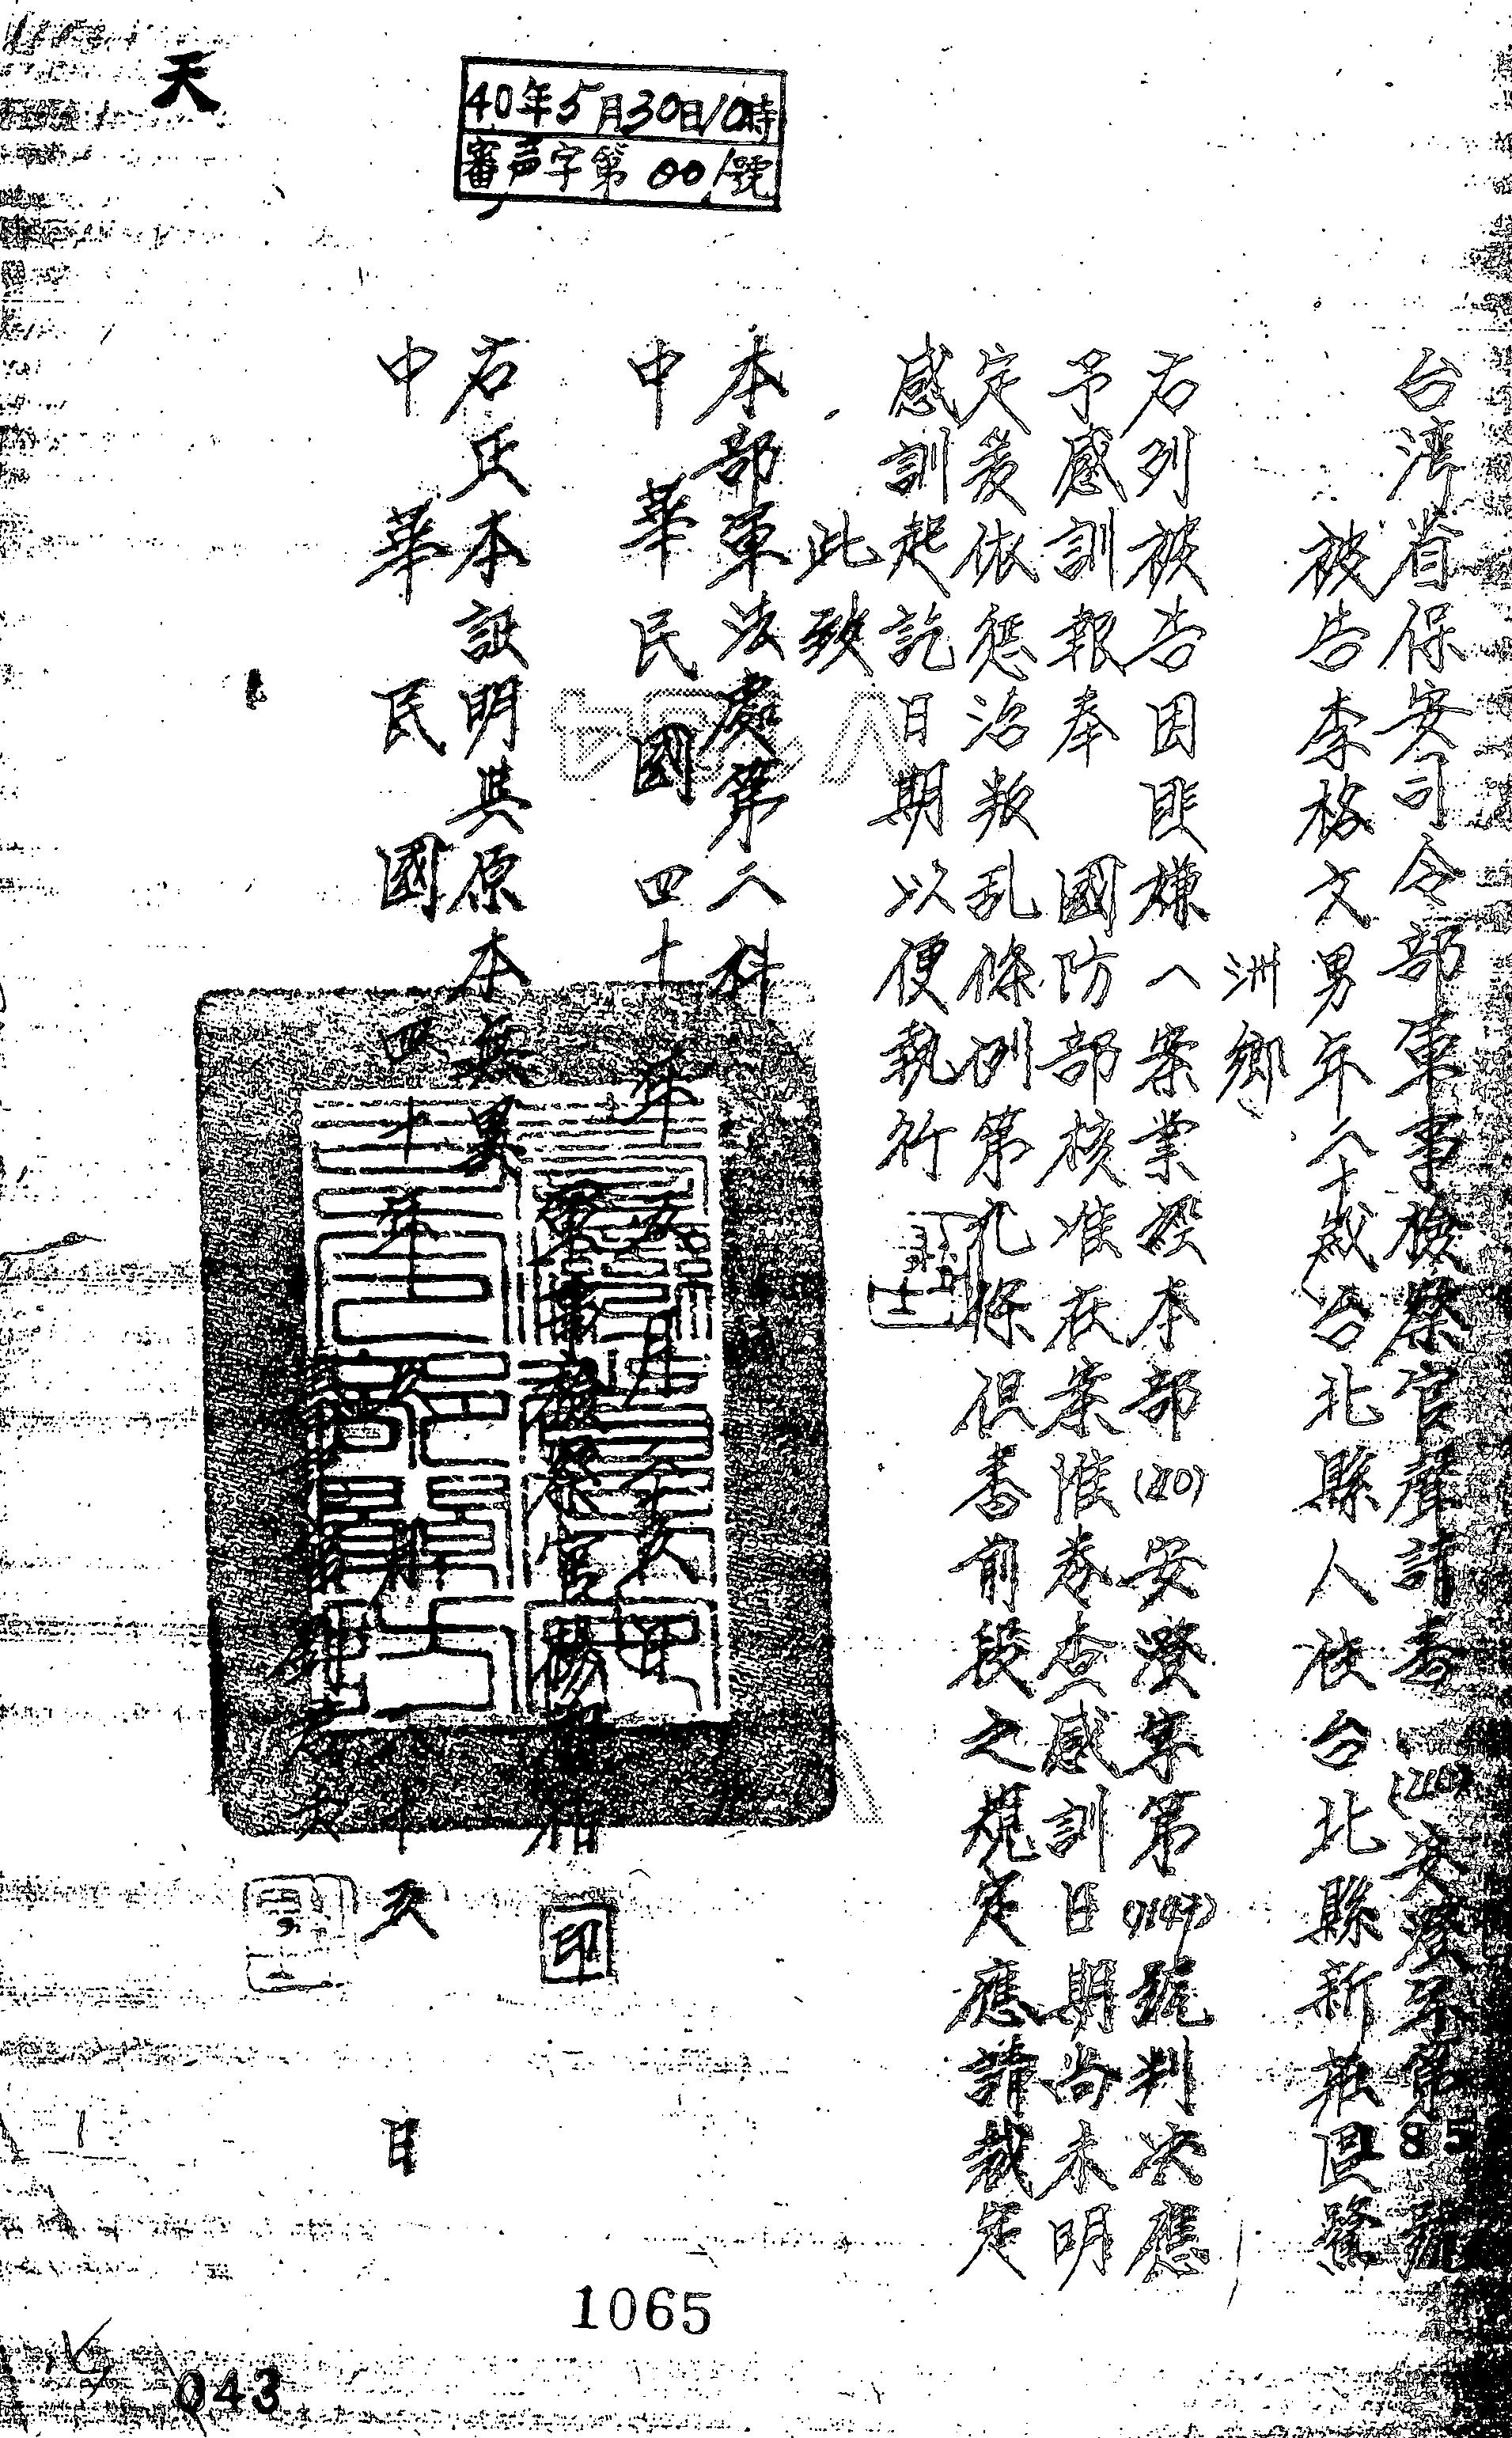 天
40年5月30日10時
審声字第001號
台湾省保安司令部軍事檢察官聲請書(40)安澄字第185號
被告李格文男年二十歲台北縣人住台北縣新莊區鷺
洲鄉
右列被告因匪嫌一案業經本部(40)安澄字第號判决應
予感訓報奉 國防部核准在案惟卷查感訓日期尚未明
定爰依惩治叛乱條例第九條但書前段之規定應請裁定
感訓起訖日期以便執行
此致
本部軍法處第二科
中華民國四十年五月
軍事檢察官楊
印
右正本証明與原本無異
中華民國四十年 月 日
1065
043